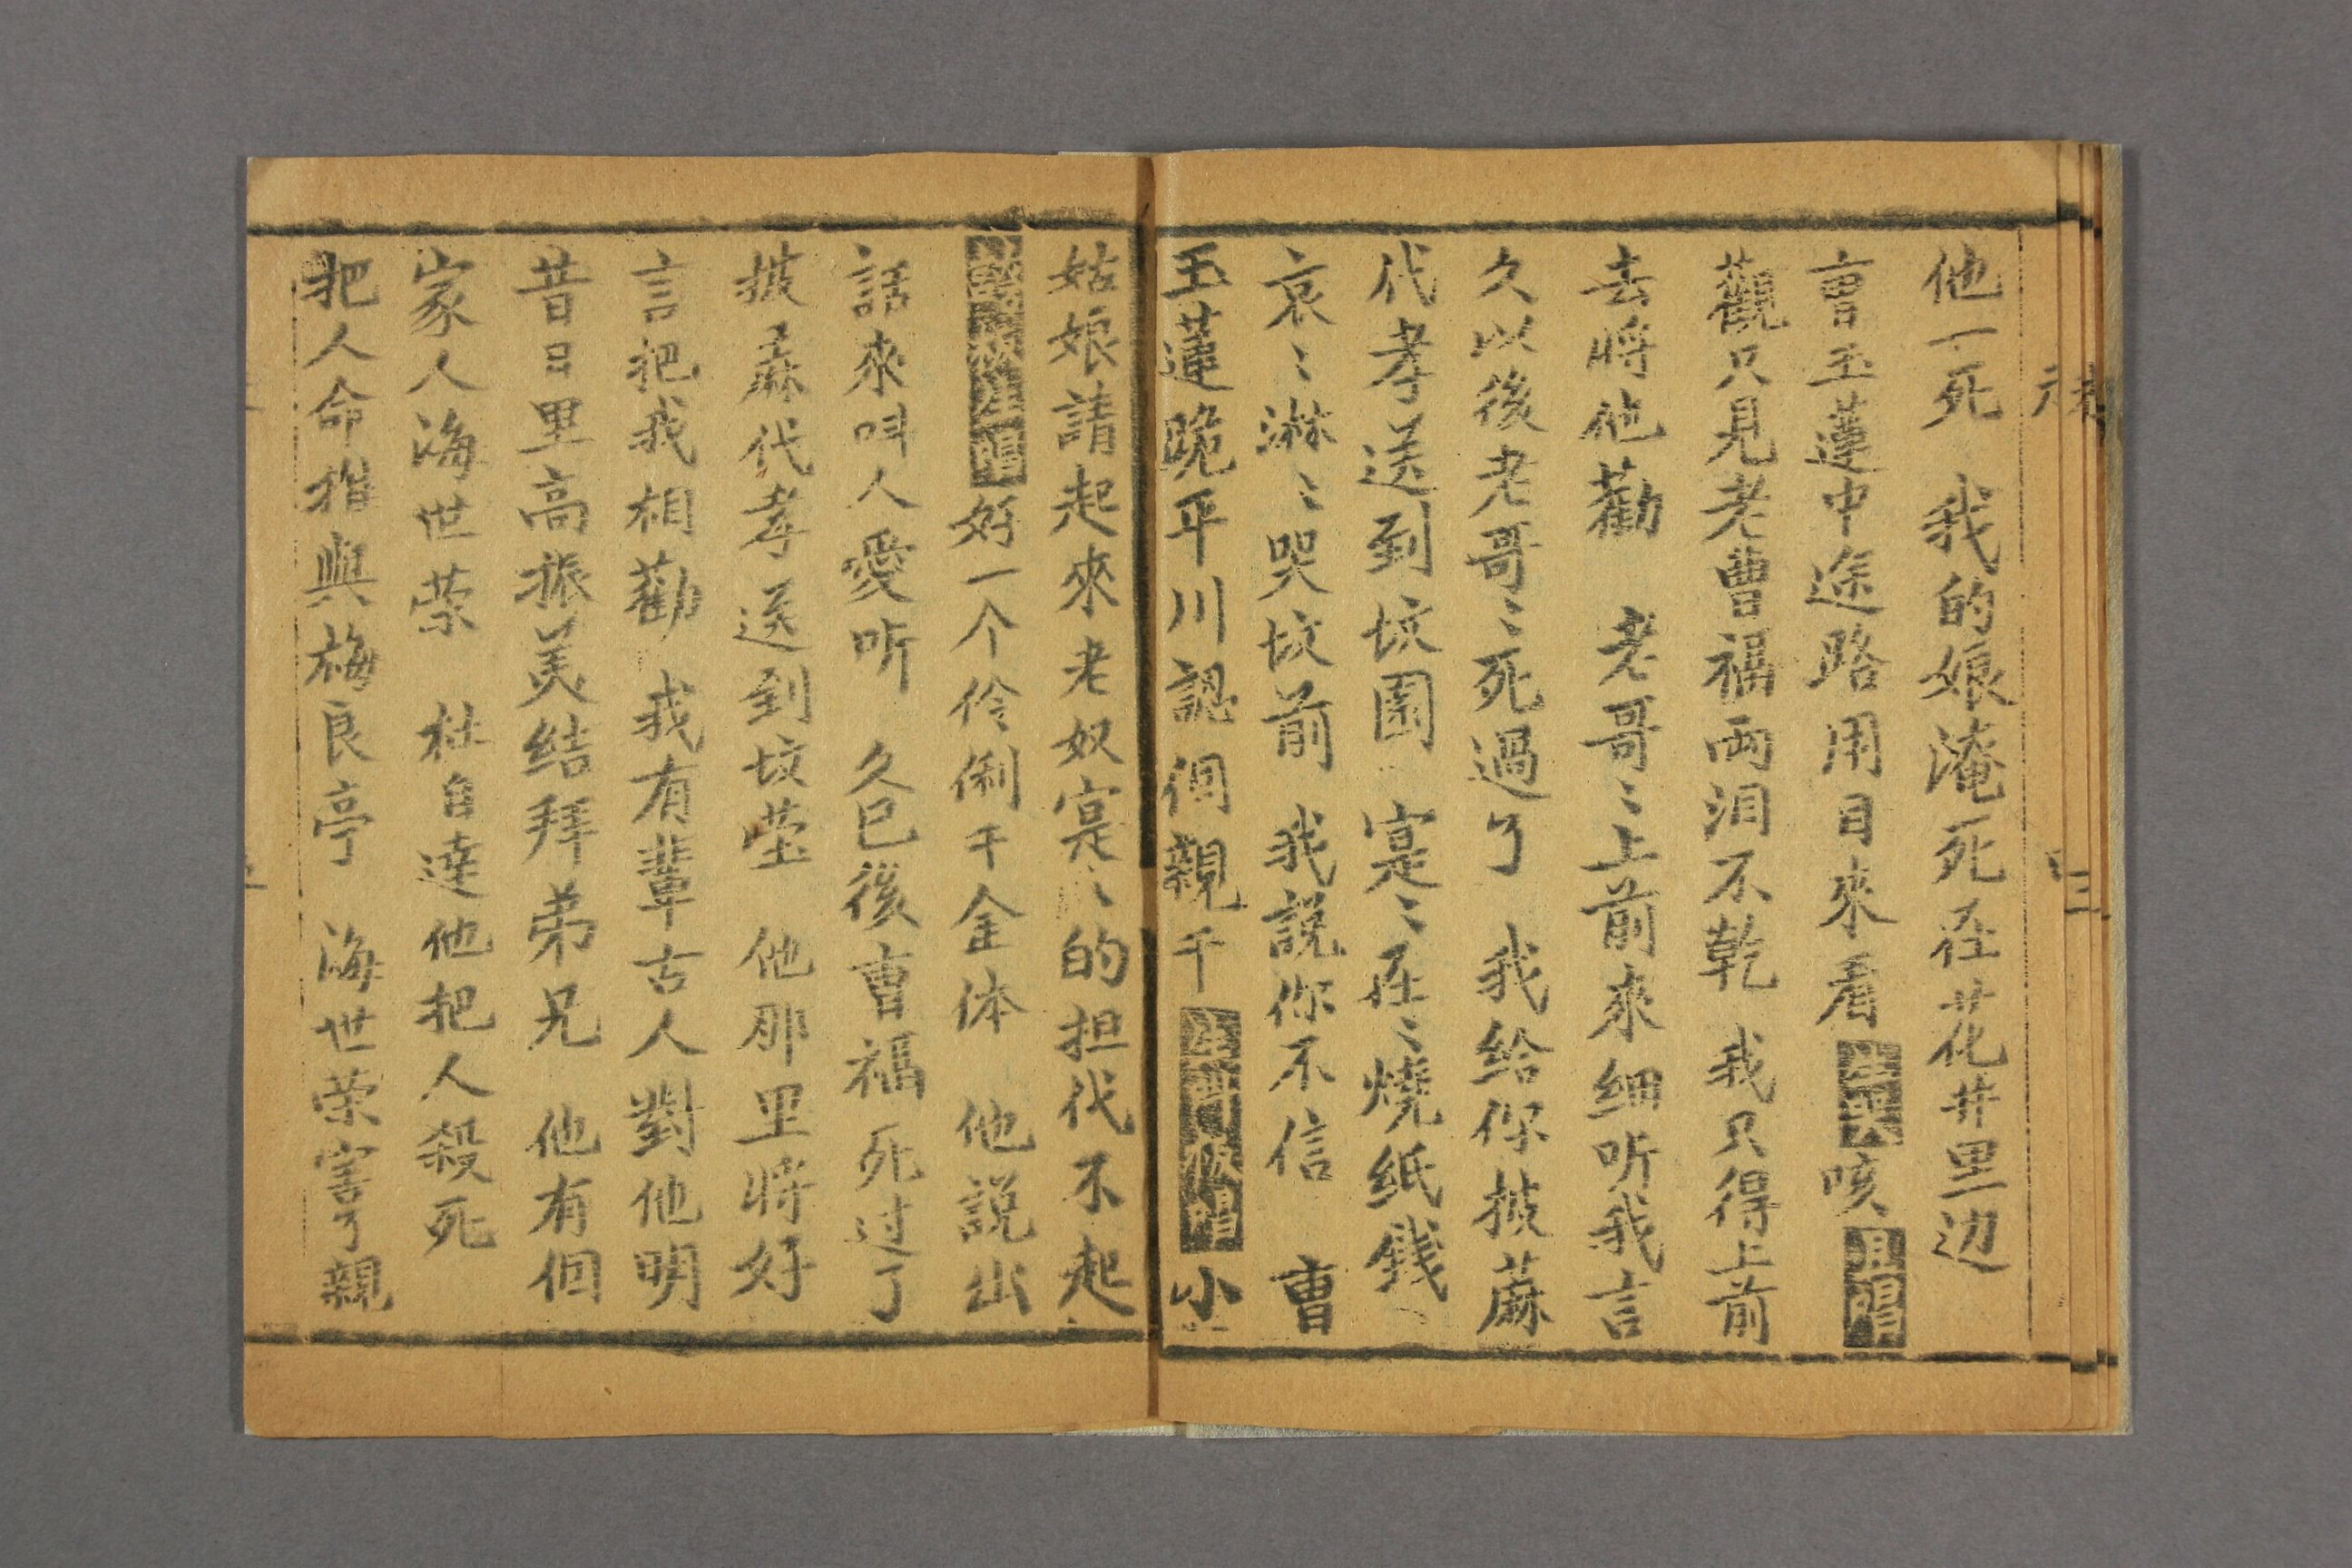 他一死　我的娘淹死在花井里边
曺玉蓮中途路用目來看　咳
觀只見老曹福両泪不乾　我只得上前
去將他勸　老哥〻上前來细听我言
久以後老哥〻死過了　我给你披蔴
代孝送到坟園　寔〻在〻燒纸錢
哀〻淋〻哭坟前　我説你不信　曺
玉蓮跪平川認個親干　小
姑娘請起來老奴寔〻的担代不起
好一个伶俐千金体　他説出
話來呌人愛听　久已後曺福死过了
披蔴代孝送到坟莹　他那里将好
言把我相勸　我有輩古人對他明
昔日里高振美结拜弟兄　他有個
家人海世荣　杜自達他把人殺死
把人命推與梅良亭　海世荣害了親